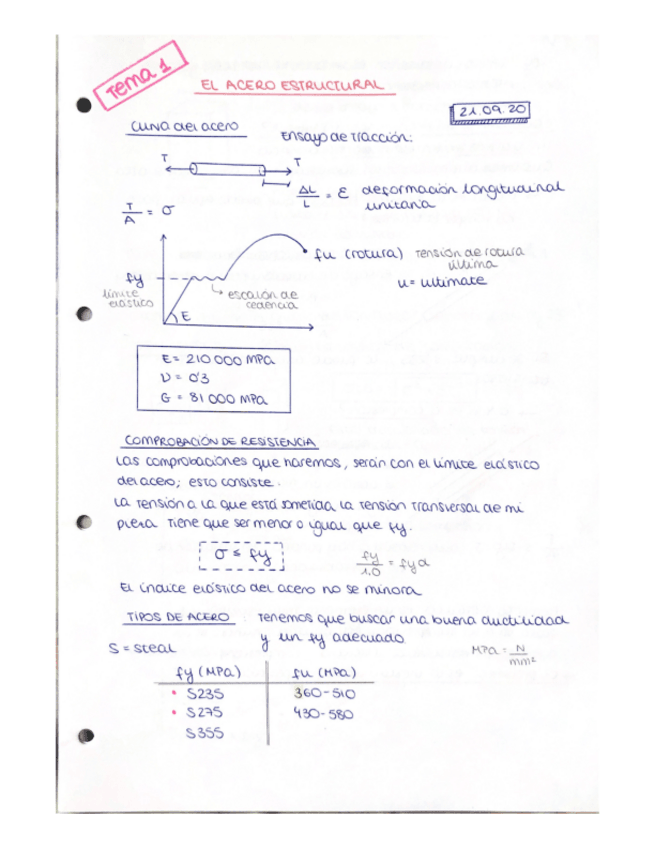 Tema 1
EL ACERO ESTRUCTURAL
21.09.20
Curva del acero
Ensayo de tracción:
T
T
ΔL/L = ε deformación longitudinal
unitaria
T/A = σ
fu (rotura) Tensión de rotura
última
u = ultimate
fy
límite
elástico
escalón de
cedencia
E
E = 210 000 MPa
ν = 0'3
G = 81 000 MPa
COMPROBACIÓN DE RESISTENCIA
Las comprobaciones que haremos, serán con el límite elástico
del acero; esto consiste.
La tensión a la que está sometida la tensión transversal de mi
pieza tiene que ser menor o ygual que fy.
σ ≤ fy
fy/1.0 = fyd
El índice elástico del acero no se minora
TIPOS DE ACERO : Tenemos que buscar una buena ductilidad
y un fy adecuado.
S = steal
MPa = N/mm²
fy (MPa) fu (MPa)
• S235 360-510
• S275 430-580
S355